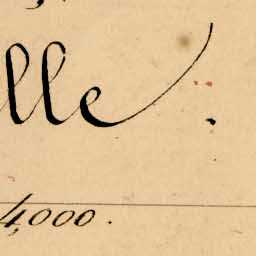 lle.
4,000.